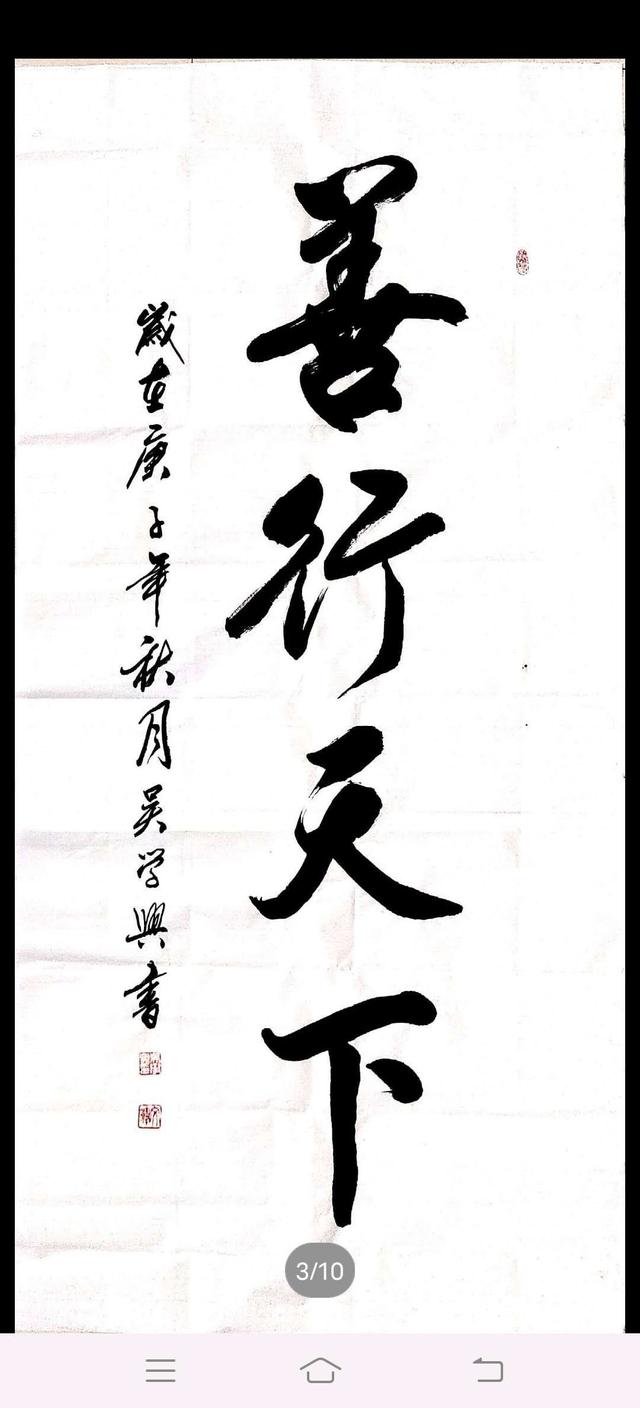 善行天下
歲在庚子年秋月吴学興書
3/10